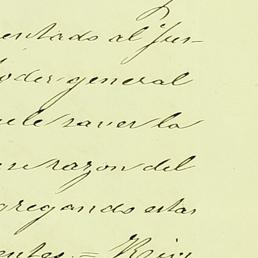 entado al Jus-
oder general
ele saver la
se razon del
gregando estas
entes. =